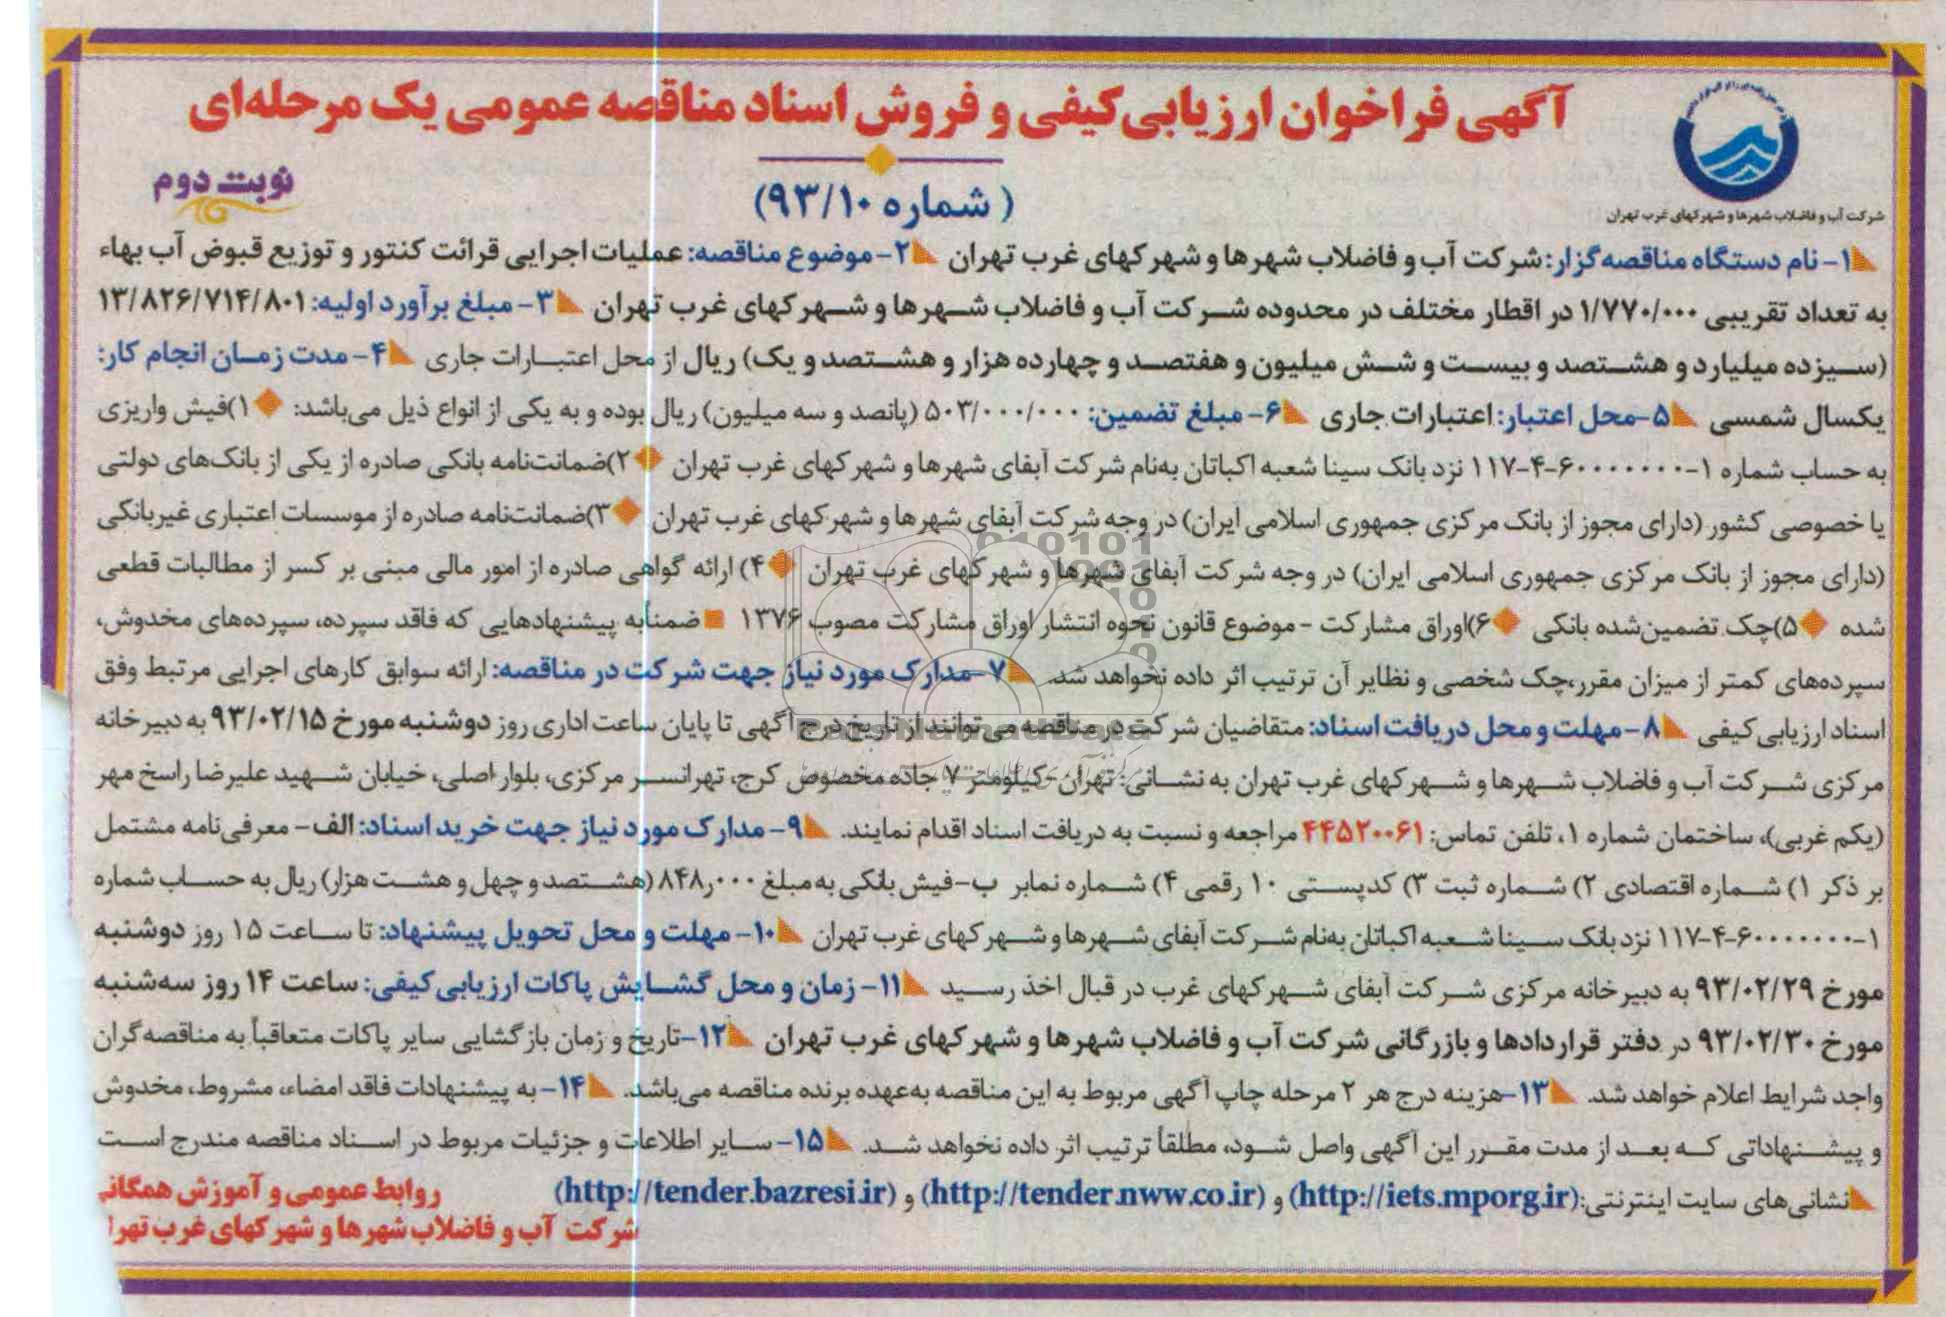 آگهی فراخوان ارزیابی کیفی و فروش اسناد مناقصه عمومی یک مرحله‌ای
نوبت دوم
(شماره ۹۳/۱۰)
شرکت آب و فاضلاب شهرها و شهرکهای غرب تهران
۱- نام دستگاه مناقصه‌گزار: شرکت آب و فاضلاب شهرها و شهرکهای غرب تهران ۲- موضوع مناقصه: عملیات اجرایی قرائت کنتور و توزیع قبوض آب بهاء
به تعداد تقریبی ۱/۷۷۰/۰۰۰ در اقطار مختلف در محدوده شرکت آب و فاضلاب شهرها و شهرکهای غرب تهران ۳- مبلغ برآورد اولیه: ۱۳/۸۲۶/۷۱۴/۸۰۱
(سیزده میلیارد و هشتصد و بیست و شش میلیون و هفتصد و چهارده هزار و هشتصد و یک) ریال از محل اعتبارات جاری ۴- مدت زمان انجام کار:
یکسال شمسی ۵-محل اعتبار: اعتبارات جاری ۶- مبلغ تضمین: ۵۰۳/۰۰۰/۰۰۰ (پانصد و سه میلیون) ریال بوده و به یکی از انواع ذیل می‌باشد: ۱)فیش واریزی
به حساب شماره ۱-۶۰۰۰۰۰۰۰-۴-۱۱۷ نزد بانک سینا شعبه اکباتان به‌نام شرکت آبفای شهرها و شهرکهای غرب تهران ۲)ضمانت‌نامه بانکی صادره از یکی از بانک‌های دولتی
یا خصوصی کشور (دارای مجوز از بانک مرکزی جمهوری اسلامی ایران) در وجه شرکت آبفای شهرها و شهرکهای غرب تهران ۳)ضمانت‌نامه صادره از موسسات اعتباری غیربانکی
(دارای مجوز از بانک مرکزی جمهوری اسلامی ایران) در وجه شرکت آبفای شهرها و شهرکهای غرب تهران ۴) ارائه گواهی صادره از امور مالی مبنی بر کسر از مطالبات قطعی
شده ۵)چک تضمین‌شده بانکی ۶)اوراق مشارکت - موضوع قانون نحوه انتشار اوراق مشارکت مصوب ۱۳۷۶ ضمناً به پیشنهادهایی که فاقد سپرده، سپرده‌های مخدوش،
سپرده‌های کمتر از میزان مقرر، چک شخصی و نظایر آن ترتیب اثر داده نخواهد شد. ۷-مدارک مورد نیاز جهت شرکت در مناقصه: ارائه سوابق کارهای اجرایی مرتبط وفق
اسناد ارزیابی کیفی ۸- مهلت و محل دریافت اسناد: متقاضیان شرکت در مناقصه می‌توانند از تاریخ درج آگهی تا پایان ساعت اداری روز دوشنبه مورخ ۹۳/۰۲/۱۵ به دبیرخانه
مرکزی شرکت آب و فاضلاب شهرها و شهرکهای غرب تهران به نشانی: تهران-کیلومتر ۷ جاده مخصوص کرج، تهرانسر مرکزی، بلوار اصلی، خیابان شهید علیرضا راسخ مهر
(یکم غربی)، ساختمان شماره ۱، تلفن تماس: ۴۴۵۲۰۰۶۱ مراجعه و نسبت به دریافت اسناد اقدام نمایند. ۹- مدارک مورد نیاز جهت خرید اسناد: الف- معرفی‌نامه مشتمل
بر ذکر ۱) شماره اقتصادی ۲) شماره ثبت ۳) کدپستی ۱۰ رقمی ۴) شماره نمابر ب-فیش بانکی به مبلغ ۸۴۸ر۰۰۰ (هشتصد و چهل و هشت هزار) ریال به حساب شماره
۱-۶۰۰۰۰۰۰۰-۴-۱۱۷ نزد بانک سینا شعبه اکباتان به‌نام شرکت آبفای شهرها و شهرکهای غرب تهران ۱۰- مهلت و محل تحویل پیشنهاد: تا ساعت ۱۵ روز دوشنبه
مورخ ۹۳/۰۲/۲۹ به دبیرخانه مرکزی شرکت آبفای شهرکهای غرب در قبال اخذ رسید ۱۱- زمان و محل گشایش پاکات ارزیابی کیفی: ساعت ۱۴ روز سه‌شنبه
مورخ ۹۳/۰۲/۳۰ در دفتر قراردادها و بازرگانی شرکت آب و فاضلاب شهرها و شهرکهای غرب تهران ۱۲-تاریخ و زمان بازگشایی سایر پاکات متعاقباً به مناقصه‌گران
واجد شرایط اعلام خواهد شد. ۱۳-هزینه درج هر ۲ مرحله چاپ آگهی مربوط به این مناقصه به‌عهده برنده مناقصه می‌باشد. ۱۴- به پیشنهادات فاقد امضاء، مشروط، مخدوش
و پیشنهاداتی که بعد از مدت مقرر این آگهی واصل شود، مطلقاً ترتیب اثر داده نخواهد شد. ۱۵- سایر اطلاعات و جزئیات مربوط در اسناد مناقصه مندرج است
نشانی‌های سایت اینترنتی: (http://iets.mporg.ir) و (http://tender.nww.co.ir) و (http://tender.bazresi.ir)
روابط عمومی و آموزش همگانی
شرکت آب و فاضلاب شهرها و شهرکهای غرب تهرا